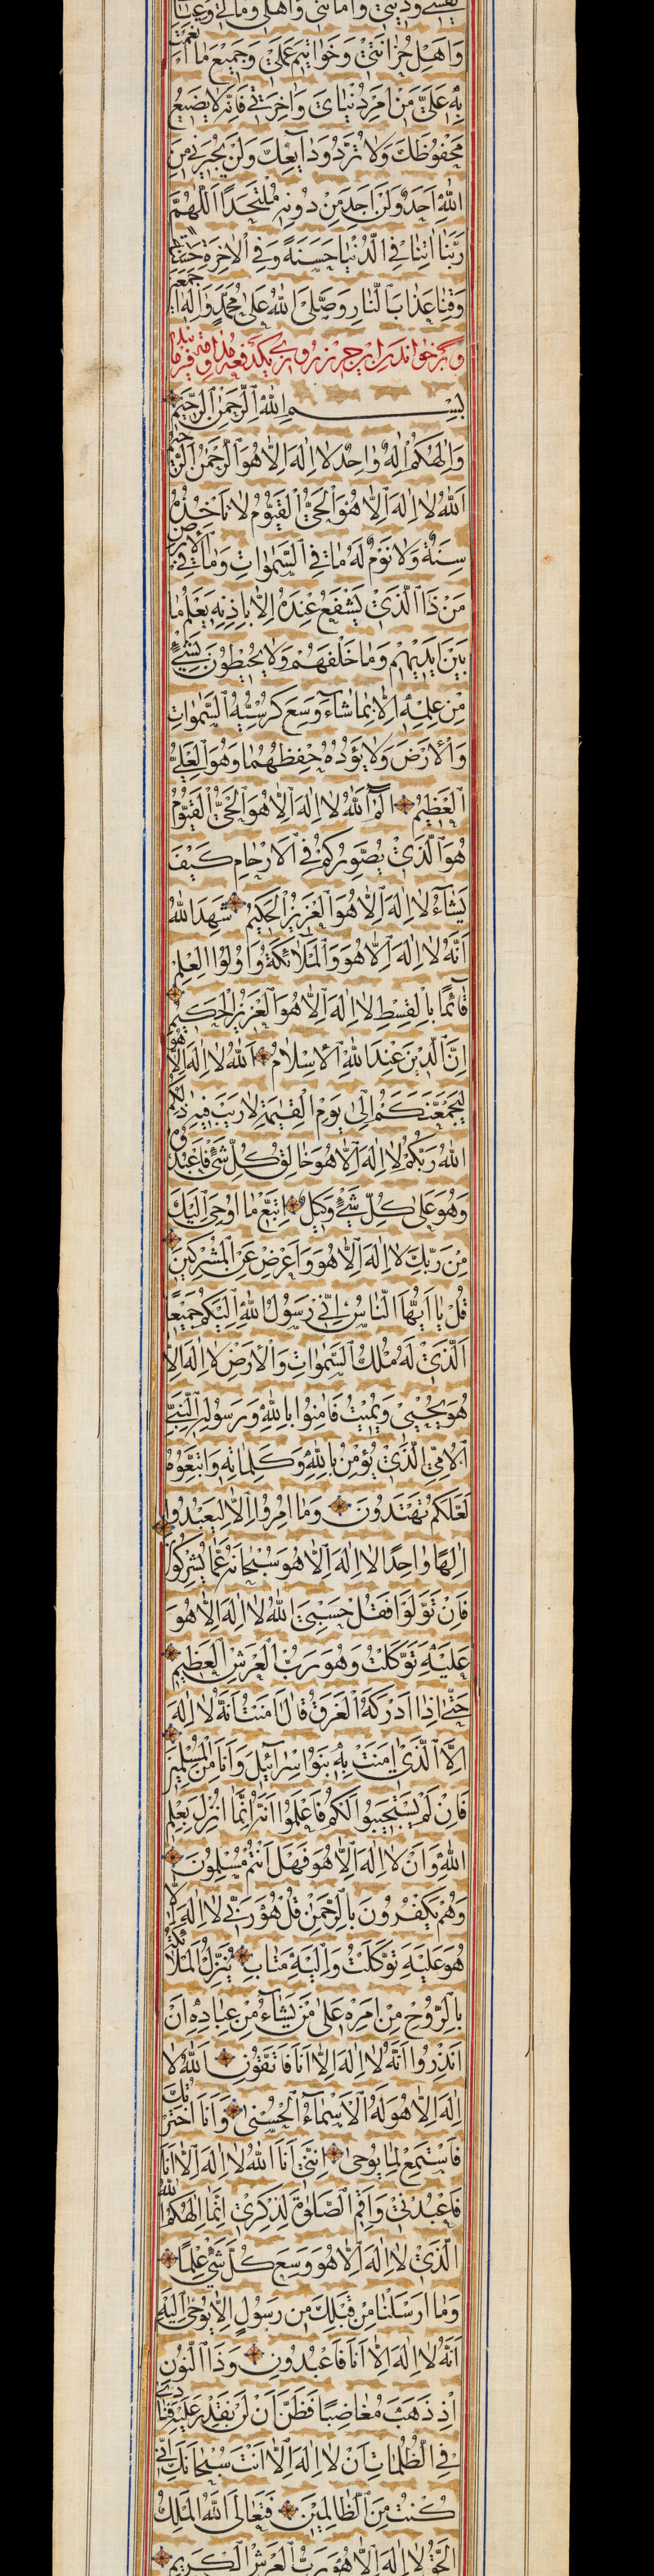 نفسي وديني وأمانتي وأهلي ومالي
وَاَهْلِ حُزَانَتِيْ وَخَوَاتِيْمِ عَمَلِيْ وَجَمِيْعِ مَا اَنْعَمْتَ
بِهِ عَلَيَّ مِنْ اَمْرِ دُنْيَايَ وَاٰخِرَتِيْ فَاِنَّهُ لَا يَضِيْعُ
مَحْفُوْظُكَ وَلَا تُرَدُّ وَدَايِعُكَ وَلَنْ يُجِيْرَنِيْ مِنَ
اللّٰهِ اَحَدٌ وَلَنْ اَجِدَ مِنْ دُوْنِهِ مُلْتَحَدًا اَللّٰهُمَّ
رَبَّنَا اٰتِنَا فِي الدُّنْيَا حَسَنَةً وَفِي الْاٰخِرَةِ حَسَنَةً
وَقِنَا عَذَابَ النَّارِ وَصَلَّى اللّٰهُ عَلٰى مُحَمَّدٍ وَاٰلِهِ اَجْمَعِيْنَ
بِسْمِ اللّٰهِ الرَّحْمٰنِ الرَّحِيْمِ
وَاِلٰهُكُمْ اِلٰهٌ وَاحِدٌ لَا اِلٰهَ اِلَّا هُوَ الرَّحْمٰنُ الرَّحِيْمُ
اَللّٰهُ لَا اِلٰهَ اِلَّا هُوَ الْحَيُّ الْقَيُّوْمُ لَا تَاْخُذُهُ
سِنَةٌ وَلَا نَوْمٌ لَهُ مَا فِي السَّمٰوَاتِ وَمَا فِي الْاَرْضِ
مَنْ ذَا الَّذِيْ يَشْفَعُ عِنْدَهُ اِلَّا بِاِذْنِهِ يَعْلَمُ مَا
بَيْنَ اَيْدِيْهِمْ وَمَا خَلْفَهُمْ وَلَا يُحِيْطُوْنَ بِشَيْءٍ
مِنْ عِلْمِهِ اِلَّا بِمَا شَآءَ وَسِعَ كُرْسِيُّهُ السَّمٰوَاتِ
وَالْاَرْضَ وَلَا يَؤُدُهُ حِفْظُهُمَا وَهُوَ الْعَلِيُّ
الْعَظِيْمُ الٓمٓ اَللّٰهُ لَا اِلٰهَ اِلَّا هُوَ الْحَيُّ الْقَيُّوْمُ
هُوَ الَّذِيْ يُصَوِّرُكُمْ فِي الْاَرْحَامِ كَيْفَ
يَشَآءُ لَا اِلٰهَ اِلَّا هُوَ الْعَزِيْزُ الْحَكِيْمُ شَهِدَ اللّٰهُ
اَنَّهُ لَا اِلٰهَ اِلَّا هُوَ وَالْمَلَائِكَةُ وَاُولُوا الْعِلْمِ
قَآئِمًا بِالْقِسْطِ لَا اِلٰهَ اِلَّا هُوَ الْعَزِيْزُ الْحَكِيْمُ
اِنَّ الدِّيْنَ عِنْدَ اللّٰهِ الْاِسْلَامُ اَللّٰهُ لَا اِلٰهَ اِلَّا هُوَ
لَيَجْمَعَنَّكُمْ اِلٰى يَوْمِ الْقِيٰمَةِ لَا رَيْبَ فِيْهِ ذٰلِكُمُ
اللّٰهُ رَبُّكُمْ لَا اِلٰهَ اِلَّا هُوَ خَالِقُ كُلِّ شَيْءٍ فَاعْبُدُوْهُ
وَهُوَ عَلٰى كُلِّ شَيْءٍ وَكِيْلٌ اِتَّبِعْ مَا اُوْحِيَ اِلَيْكَ
مِنْ رَبِّكَ لَا اِلٰهَ اِلَّا هُوَ وَاَعْرِضْ عَنِ الْمُشْرِكِيْنَ
قُلْ يَا اَيُّهَا النَّاسُ اِنِّيْ رَسُوْلُ اللّٰهِ اِلَيْكُمْ جَمِيْعًا
الَّذِيْ لَهُ مُلْكُ السَّمٰوَاتِ وَالْاَرْضِ لَا اِلٰهَ اِلَّا
هُوَ يُحْيِيْ وَيُمِيْتُ فَاٰمِنُوْا بِاللّٰهِ وَرَسُوْلِهِ النَّبِيِّ
الْاُمِّيِّ الَّذِيْ يُؤْمِنُ بِاللّٰهِ وَكَلِمَاتِهِ وَاتَّبِعُوْهُ
لَعَلَّكُمْ تَهْتَدُوْنَ وَمَا اُمِرُوْا اِلَّا لِيَعْبُدُوْا
اِلٰهًا وَاحِدًا لَا اِلٰهَ اِلَّا هُوَ سُبْحَانَهُ عَمَّا يُشْرِكُوْنَ
فَاِنْ تَوَلَّوْا فَقُلْ حَسْبِيَ اللّٰهُ لَا اِلٰهَ اِلَّا هُوَ
عَلَيْهِ تَوَكَّلْتُ وَهُوَ رَبُّ الْعَرْشِ الْعَظِيْمِ
حَتّٰى اِذَا اَدْرَكَهُ الْغَرَقُ قَالَ اٰمَنْتُ اَنَّهُ لَا اِلٰهَ
اِلَّا الَّذِيْ اٰمَنَتْ بِهِ بَنُوْا اِسْرَآئِيْلَ وَاَنَا مِنَ الْمُسْلِمِيْنَ
فَاِنْ لَمْ يَسْتَجِيْبُوْا لَكُمْ فَاعْلَمُوْا اَنَّمَا اُنْزِلَ بِعِلْمِ
اللّٰهِ وَاَنْ لَا اِلٰهَ اِلَّا هُوَ فَهَلْ اَنْتُمْ مُسْلِمُوْنَ
وَهُمْ يَكْفُرُوْنَ بِالرَّحْمٰنِ قُلْ هُوَ رَبِّيْ لَا اِلٰهَ اِلَّا
هُوَ عَلَيْهِ تَوَكَّلْتُ وَاِلَيْهِ مَتَابِ يُنَزِّلُ الْمَلَائِكَةَ
بِالرُّوْحِ مِنْ اَمْرِهِ عَلٰى مَنْ يَشَآءُ مِنْ عِبَادِهِ اَنْ
اَنْذِرُوْا اَنَّهُ لَا اِلٰهَ اِلَّا اَنَا فَاتَّقُوْنِ اَللّٰهُ لَا
اِلٰهَ اِلَّا هُوَ لَهُ الْاَسْمَآءُ الْحُسْنٰى وَاَنَا اخْتَرْتُكَ
فَاسْتَمِعْ لِمَا يُوْحٰى اِنَّنِيْ اَنَا اللّٰهُ لَا اِلٰهَ اِلَّا اَنَا
فَاعْبُدْنِيْ وَاَقِمِ الصَّلٰوةَ لِذِكْرِيْ اِنَّمَا اِلٰهُكُمُ اللّٰهُ
الَّذِيْ لَا اِلٰهَ اِلَّا هُوَ وَسِعَ كُلَّ شَيْءٍ عِلْمًا
وَمَا اَرْسَلْنَا مِنْ قَبْلِكَ مِنْ رَسُوْلٍ اِلَّا يُوْحٰى اِلَيْهِ
اَنَّهُ لَا اِلٰهَ اِلَّا اَنَا فَاعْبُدُوْنِ وَذَا النُّوْنِ
اِذْ ذَهَبَ مُغَاضِبًا فَظَنَّ اَنْ لَنْ نَقْدِرَ عَلَيْهِ فَنَادٰى
فِي الظُّلُمَاتِ اَنْ لَا اِلٰهَ اِلَّا اَنْتَ سُبْحَانَكَ اِنِّيْ
كُنْتُ مِنَ الظَّالِمِيْنَ فَتَعَالَى اللّٰهُ الْمَلِكُ
الْحَقُّ لَا اِلٰهَ اِلَّا هُوَ رَبُّ الْعَرْشِ الْكَرِيْمِ